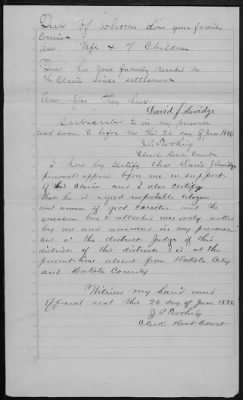 Ques Of whome does your family
Consist
Ans Wife & 7 Children
Ques has your family resided on
the Claim since settlement
Ans Yes they have
David J. 
Subscribed to in my presence
and sworn to before me this 26 day of June 1886
J P
Clerk Dist Court
I here by certify that David J
personally appears before me in support
of his Claim and I also certify
that he is a good reputable citizen
and a man of good caracter and the
question hereto attached were only asked
by me and answered in my presence
as the district Judge of this
district of this district is at the
present time absent from Dakota City
and Dakota County
Witness my hand and
official seal this 26 day of June 1886
J P
Clerk Dist Court